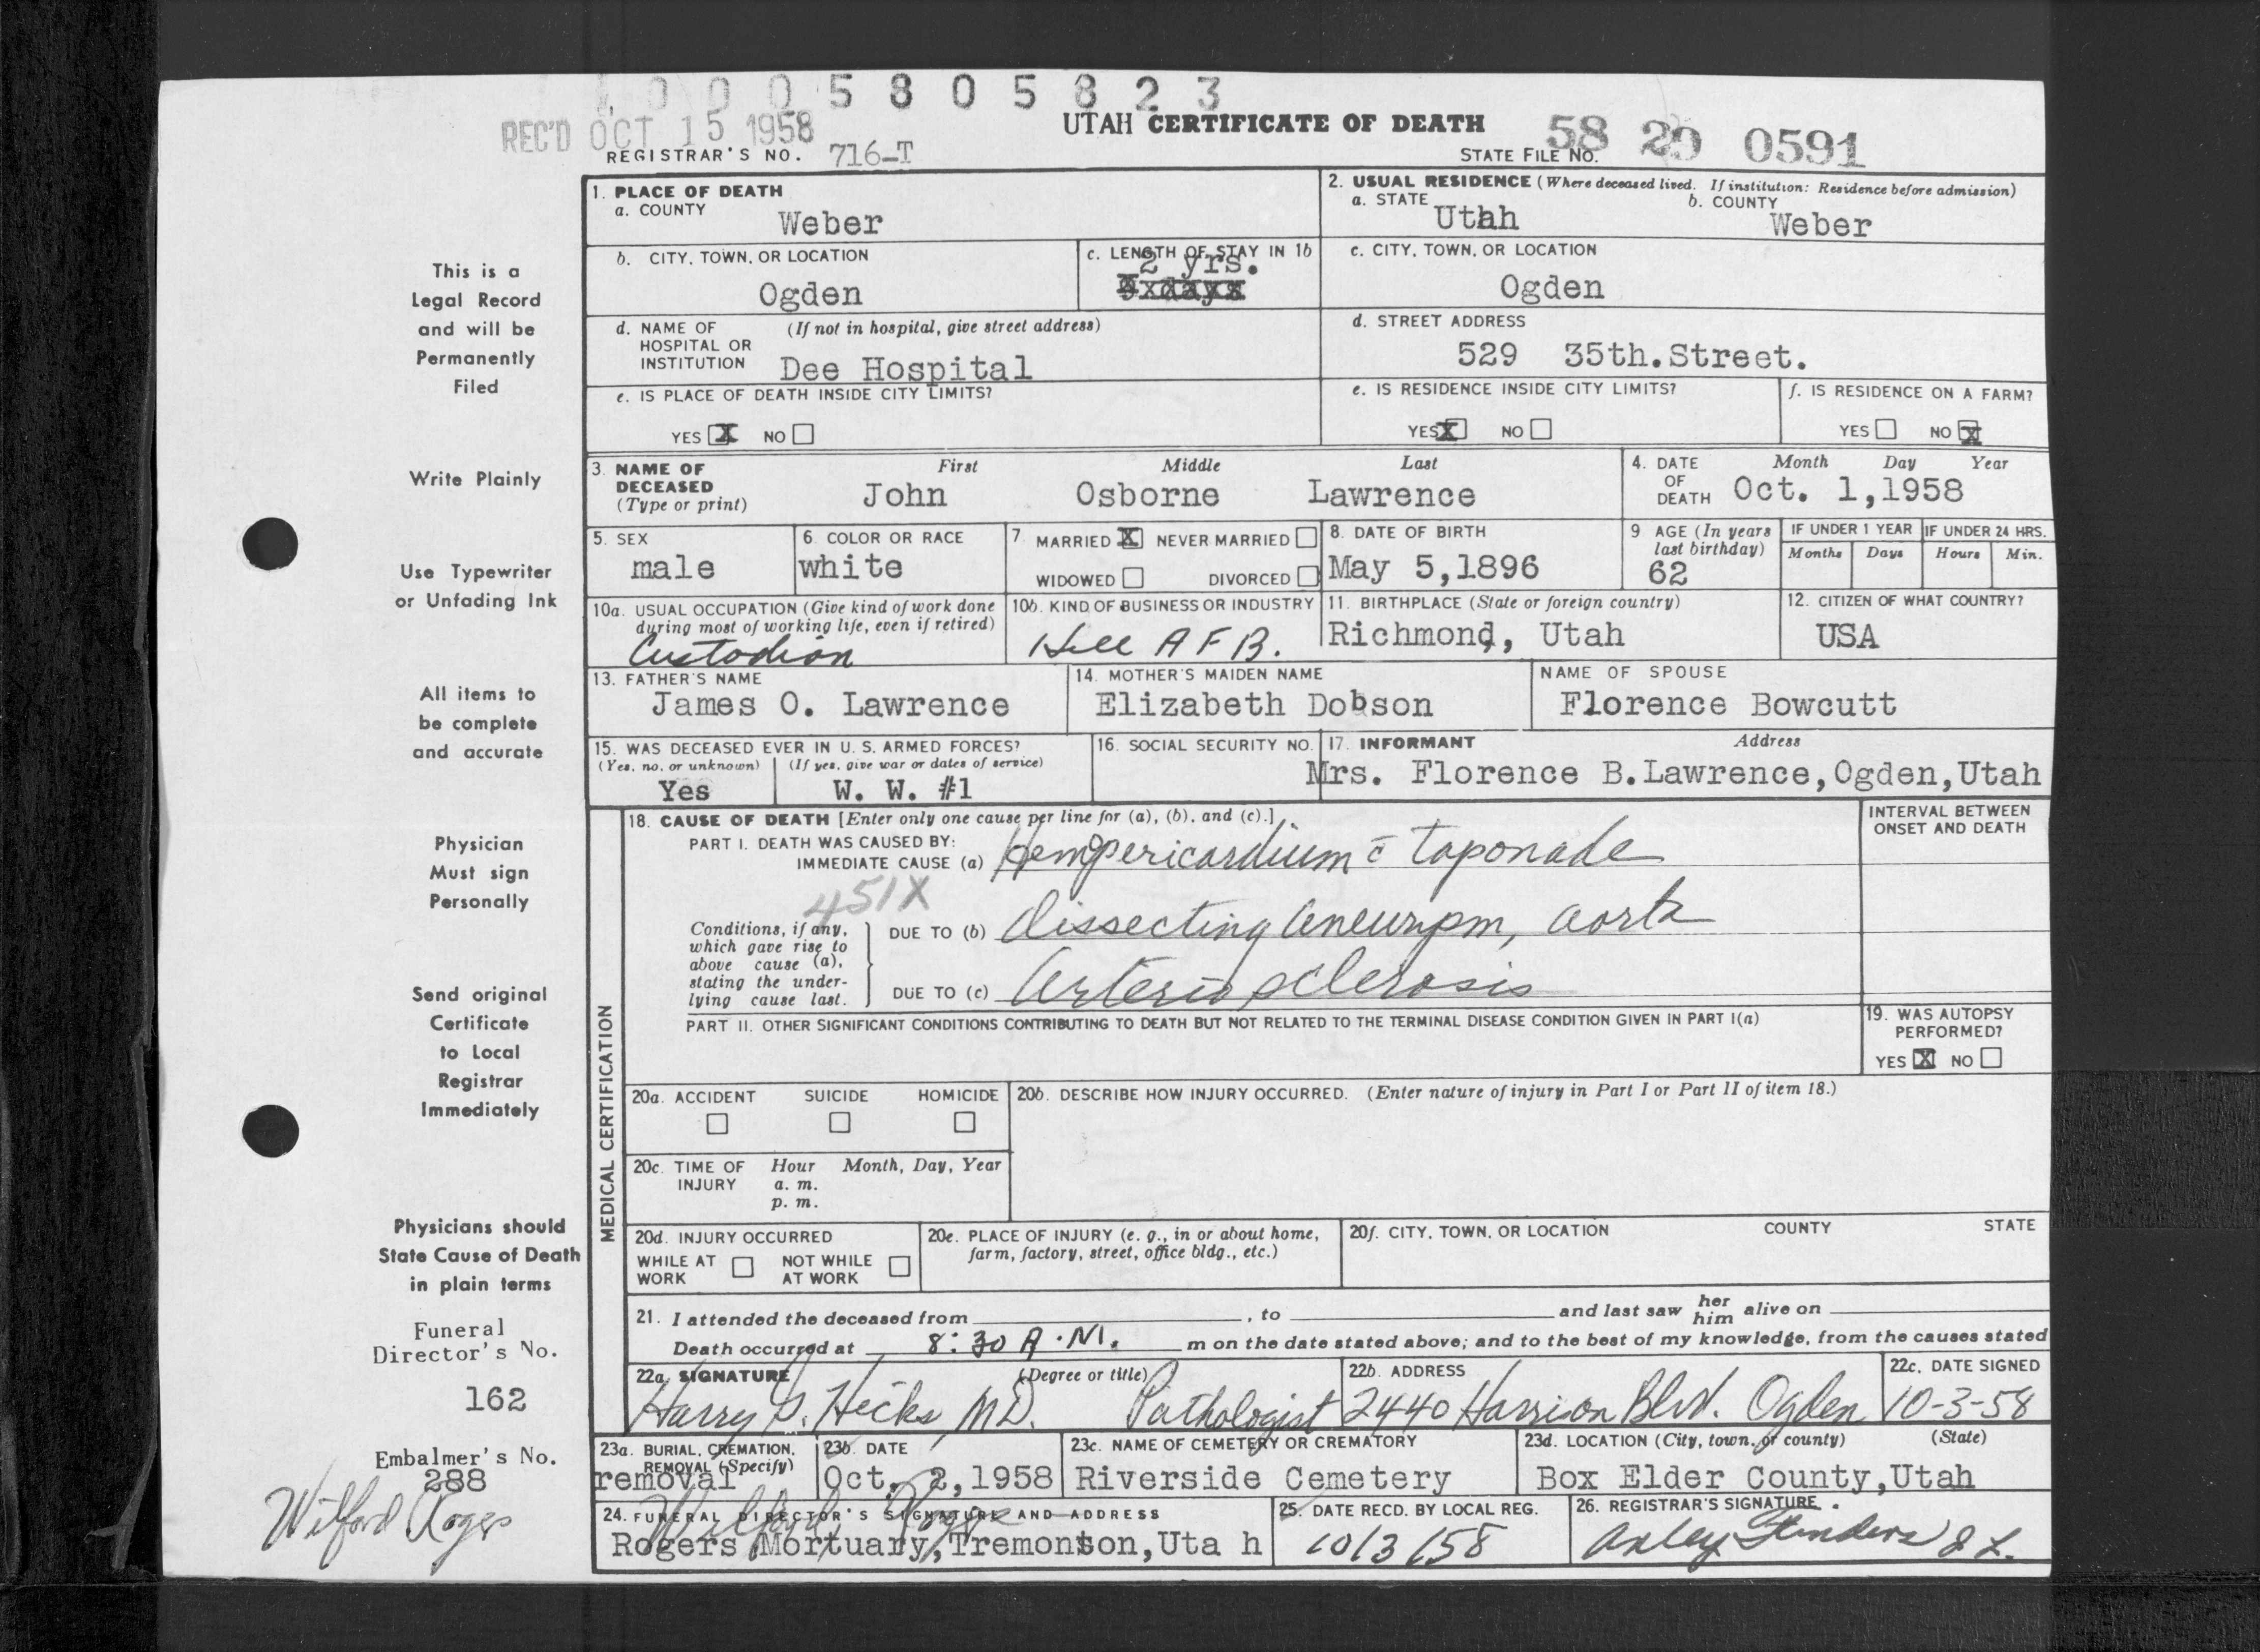 1 0 0 0 5 8 0 5 8 2 3
REC'D OCT 15 1958
UTAH CERTIFICATE OF DEATH
REGISTRAR'S NO. 716-T
STATE FILE NO. 58 29 0591
This is a
Legal Record
and will be
Permanently
Filed
Write Plainly
Use Typewriter
or Unfading Ink
All items to
be complete
and accurate
Physician
Must sign
Personally
Send original
Certificate
to Local
Registrar
Immediately
Physicians should
State Cause of Death
in plain terms
Funeral
Director's No.
162
Embalmer's No.
288
Wilford Rogers
1. PLACE OF DEATH
a. COUNTY Weber
2. USUAL RESIDENCE (Where deceased lived. If institution: Residence before admission)
a. STATE Utah b. COUNTY Weber
b. CITY, TOWN, OR LOCATION Ogden
c. LENGTH OF STAY IN 1b 2 yrs.
c. CITY, TOWN, OR LOCATION Ogden
d. NAME OF (If not in hospital, give street address)
HOSPITAL OR
INSTITUTION Dee Hospital
d. STREET ADDRESS
529 35th.Street.
e. IS PLACE OF DEATH INSIDE CITY LIMITS?
YES X NO
e. IS RESIDENCE INSIDE CITY LIMITS?
YES X NO
f. IS RESIDENCE ON A FARM?
YES NO X
3. NAME OF DECEASED (Type or print)
First Middle Last
John Osborne Lawrence
4. DATE OF DEATH Month Day Year
Oct. 1,1958
5. SEX
male
6. COLOR OR RACE
white
7. MARRIED X NEVER MARRIED
WIDOWED DIVORCED
8. DATE OF BIRTH
May 5,1896
9 AGE (In years last birthday)
62
IF UNDER 1 YEAR IF UNDER 24 HRS.
Months Days Hours Min.
10a. USUAL OCCUPATION (Give kind of work done
during most of working life, even if retired)
Custodian
10b. KIND OF BUSINESS OR INDUSTRY
Hill A F B.
11. BIRTHPLACE (State or foreign country)
Richmond, Utah
12. CITIZEN OF WHAT COUNTRY?
USA
13. FATHER'S NAME
James O. Lawrence
14. MOTHER'S MAIDEN NAME
Elizabeth Dobson
NAME OF SPOUSE
Florence Bowcutt
15. WAS DECEASED EVER IN U. S. ARMED FORCES?
(Yes, no, or unknown) (If yes, give war or dates of service)
Yes W. W. #1
16. SOCIAL SECURITY NO.
17. INFORMANT Address
Mrs. Florence B.Lawrence,Ogden,Utah
MEDICAL CERTIFICATION
18. CAUSE OF DEATH [Enter only one cause per line for (a), (b), and (c).]
INTERVAL BETWEEN
ONSET AND DEATH
PART I. DEATH WAS CAUSED BY:
IMMEDIATE CAUSE (a) Hempericardium c̄ taponade
451X
Conditions, if any,
which gave rise to
above cause (a),
stating the under-
lying cause last.
DUE TO (b) dissecting aneurysm, aorta
DUE TO (c) Arteriosclerosis
PART II. OTHER SIGNIFICANT CONDITIONS CONTRIBUTING TO DEATH BUT NOT RELATED TO THE TERMINAL DISEASE CONDITION GIVEN IN PART I(a)
19. WAS AUTOPSY
PERFORMED?
YES X NO
20a. ACCIDENT SUICIDE HOMICIDE
20b. DESCRIBE HOW INJURY OCCURRED. (Enter nature of injury in Part I or Part II of item 18.)
20c. TIME OF Hour Month, Day, Year
INJURY a. m.
p. m.
20d. INJURY OCCURRED
WHILE AT WORK NOT WHILE AT WORK
20e. PLACE OF INJURY (e. g., in or about home,
farm, factory, street, office bldg., etc.)
20f. CITY, TOWN, OR LOCATION COUNTY STATE
21. I attended the deceased from , to and last saw her him alive on
Death occurred at 8:30 A.M. m on the date stated above; and to the best of my knowledge, from the causes stated
22a. SIGNATURE (Degree or title)
Harry Hicks MD. Pathologist
22b. ADDRESS
2440 Harrison Blvd. Ogden
22c. DATE SIGNED
10-3-58
23a. BURIAL, CREMATION,
REMOVAL (Specify)
removal
23b. DATE
Oct. 2,1958
23c. NAME OF CEMETERY OR CREMATORY
Riverside Cemetery
23d. LOCATION (City, town, or county) (State)
Box Elder County,Utah
24. FUNERAL DIRECTOR'S SIGNATURE AND ADDRESS
Wilford Rogers
Rogers Mortuary,Tremonton,Uta h
25. DATE RECD. BY LOCAL REG.
10/3/58
26. REGISTRAR'S SIGNATURE